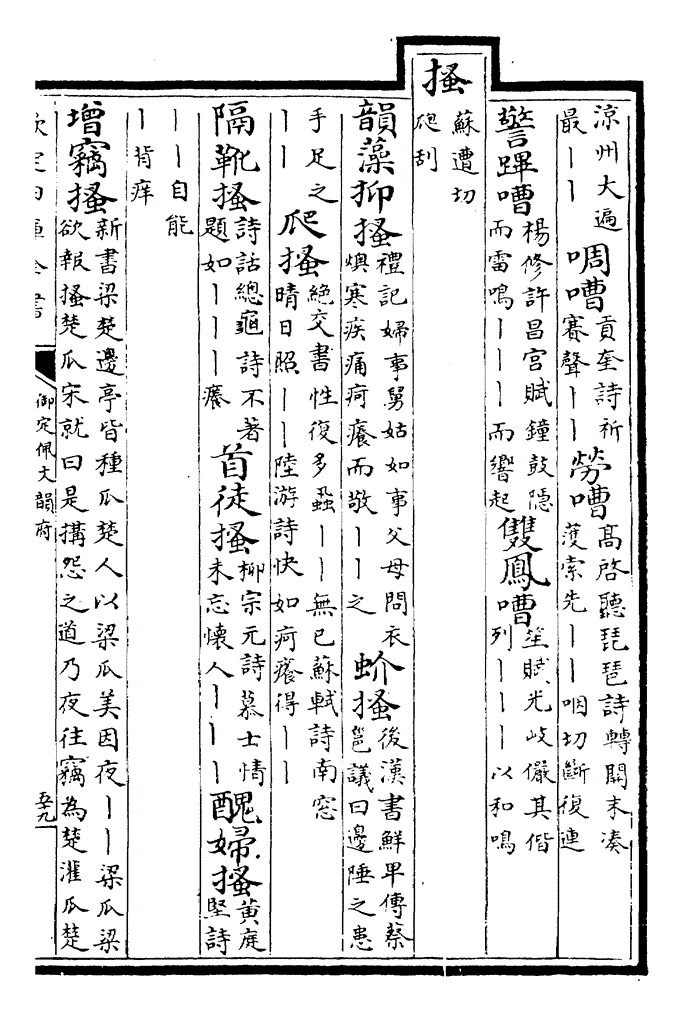 涼州大遍最丨丨 啁嘈 貢奎詩祈賽聲丨丨 勞嘈 髙啓聽琵琶詩轉關末湊濩索先丨丨咽切斷復連
警蹕嘈 楊修許昌宮賦鐘鼓隱而雷鳴丨丨丨而響起 雙鳳嘈 笙賦光岐儼其偕列丨丨丨以和鳴
搔 蘇遭切刮
韻藻抑搔 禮記婦事舅姑如事父母問衣燠寒疾痛疴癢而敬丨丨之 蚧搔 後漢書鮮卑傳蔡邕議曰邊陲之患
手足之丨丨 爬搔 絶交書性復多蝨丨丨無已蘇軾詩南窓晴日照丨丨陸游詩快如疴癢得丨丨
隔靴搔 詩話總龜詩不著題如丨丨丨癢 首徒搔 柳宗元詩慕士情未忘懷人丨丨丨 醜婦搔 黄庭堅詩
丨丨自能丨背痒
增竊搔 新書梁楚邊亭皆種瓜楚人以梁瓜美因夜丨丨梁瓜梁欲報搔楚瓜宋就曰是搆怨之道乃夜往竊為楚灌瓜楚
欽定四庫全書
御定佩文韻府
五十九